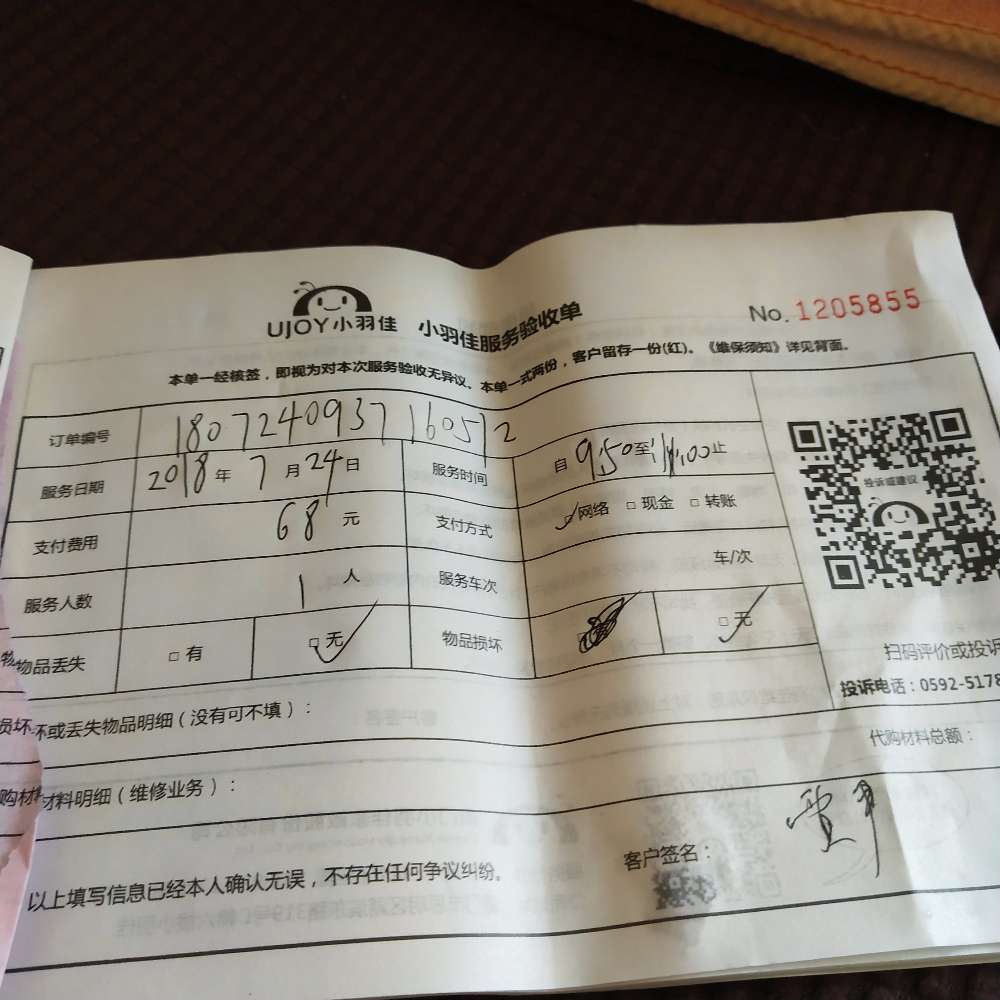 UJOY小羽佳 小羽佳服务验收单 No. 1205855
本单一经核签，即视为对本次服务验收无异议。本单一式两份，客户留存一份(红)。《维保须知》详见背面。
订单编号 18072409371 16057 2
服务日期 2018年7月24日 服务时间 自9:50至11:00止
支付费用 68元 支付方式 □网络 □现金 □转账
投诉或建议
服务人数 1人 服务车次 车/次
物品丢失 □有 □无 物品损坏 □无
扫码评价或投诉
投诉电话：0592-5178
坏或丢失物品明细（没有可不填）：
代购材料总额：
材料明细（维修业务）：
客户签名：
以上填写信息已经本人确认无误，不存在任何争议纠纷。